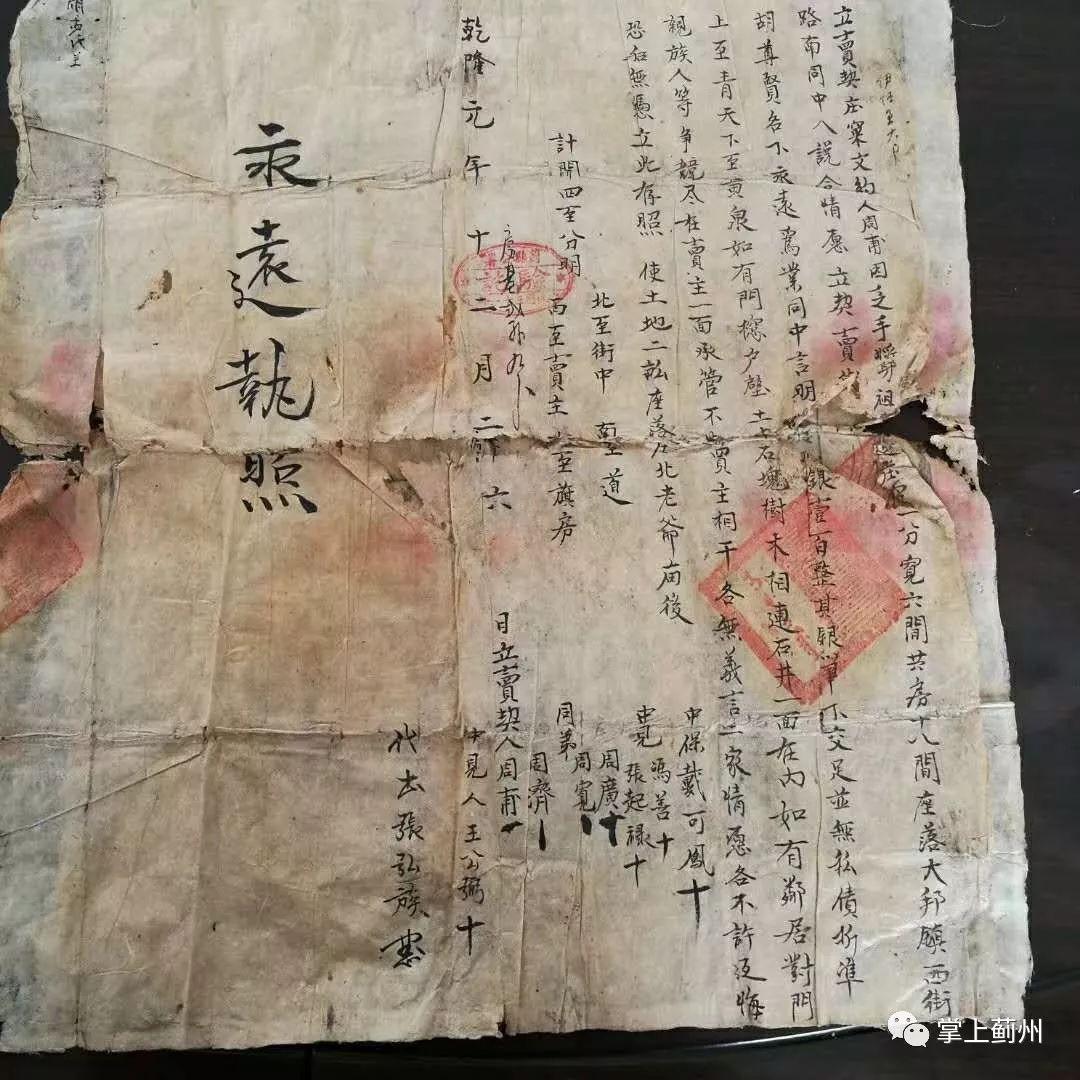 立賣契庄窠文約人周甫因乏手將祖遺庄窠一分寛六間共房十八間座落大邦鎮西街
路南同中人説合情愿立契賣與
胡尊賢名下永遠爲業同中言明銀壹百整其銀筆下交足並無私債折準
上至青天下至黄泉如有門楼户壁土石塊樹木相連石井一面在内如有鄰居對門
親族人等争競尽在賣主一面承管不與買主相干各無義言二家情愿各不許返悔
恐後無憑立此存照 使土地二畆座落在北老爺庙後
北至街中 南至道
計開四至分明 西至賣主 至旗房
中保戴可鳳十
中見馮善十
張起禄十
周廣十
同弟周寬
周濟
乾隆元年十二月二 六日立賣契人周甫
中見人王公弼十
代書張弘族
永遠執照
掌上蓟州